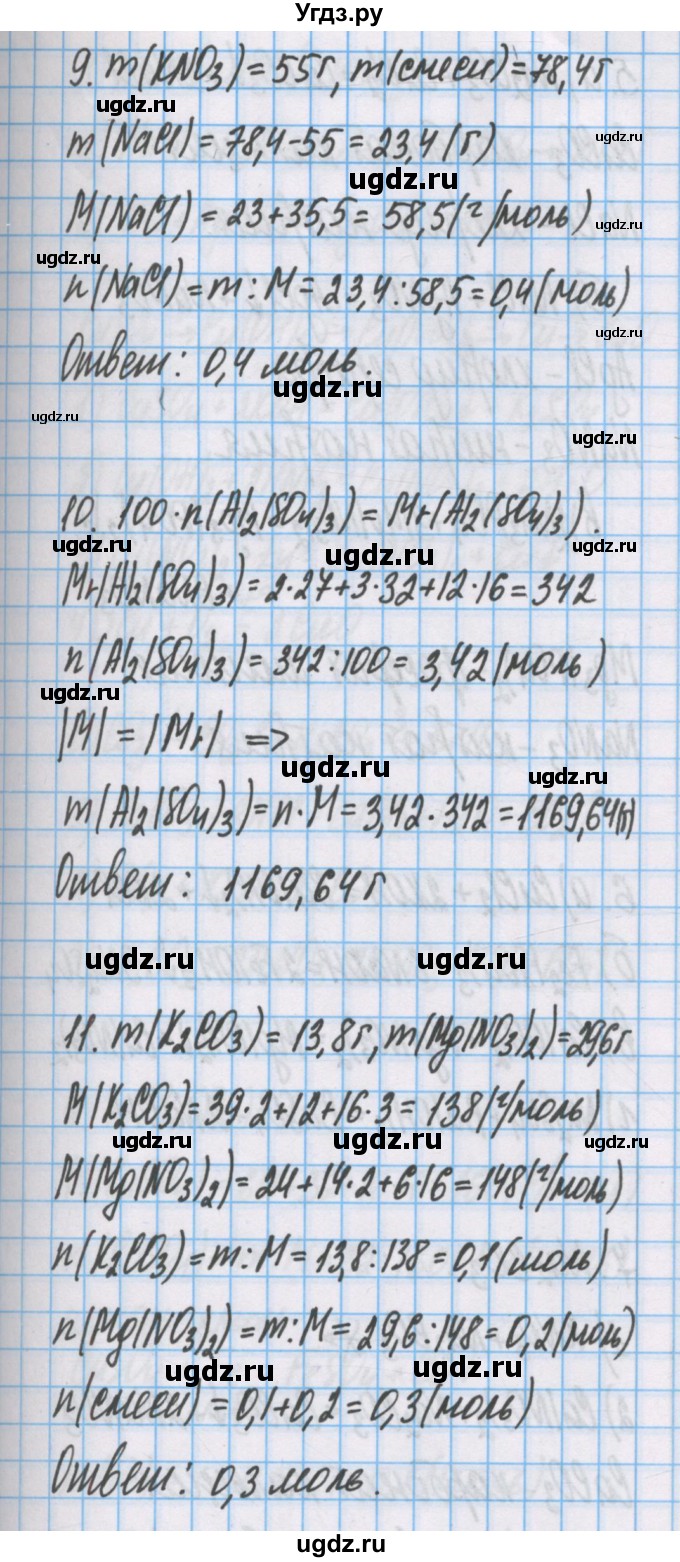 Угдз.ру
9. m(KNO3) = 55г, m(смеси) = 78,4г
ugdz.ru
ugdz.ru
m(NaCl) = 78,4-55 = 23,4 (г)
ugdz.ru
M(NaCl) = 23+35,5 = 58,5(г/моль)
ugdz.ru
ugdz.ru
n(NaCl) = m : M = 23,4 : 58,5 = 0,4(моль)
ugdz.ru
Ответ: 0,4 моль.
ugdz.ru
ugdz.ru
ugdz.ru
10. 100·n(Al2(SO4)3) = Mr(Al2(SO4)3).
ugdz.ru
ugdz.ru
ugdz.ru
Mr(Al2(SO4)3) = 2·27+3·32+12·16 = 342
n(Al2(SO4)3) = 342:100 = 3,42(моль)
ugdz.ru
|M| = |Mr| =>
ugdz.ru
ugdz.ru
m(Al2(SO4)3) = n·M = 3,42·342 = 1169,64(г)
Ответ: 1169,64 г
ugdz.ru
ugdz.ru
11. m(K2CO3) = 13,8г, m(Mg(NO3)2) = 29,6г
M(K2CO3) = 39·2+12+16·3 = 138(г/моль)
ugdz.ru
ugdz.ru
ugdz.ru
M(Mg(NO3)2) = 24+14·2+6·16 = 148(г/моль)
n(K2CO3) = m : M = 13,8 : 138 = 0,1(моль)
n(Mg(NO3)2) = m : M = 29,6 : 148 = 0,2(моль)
ugdz.ru
ugdz.ru
n(смеси) = 0,1+0,2 = 0,3(моль)
Ответ: 0,3 моль.
ugdz.ru